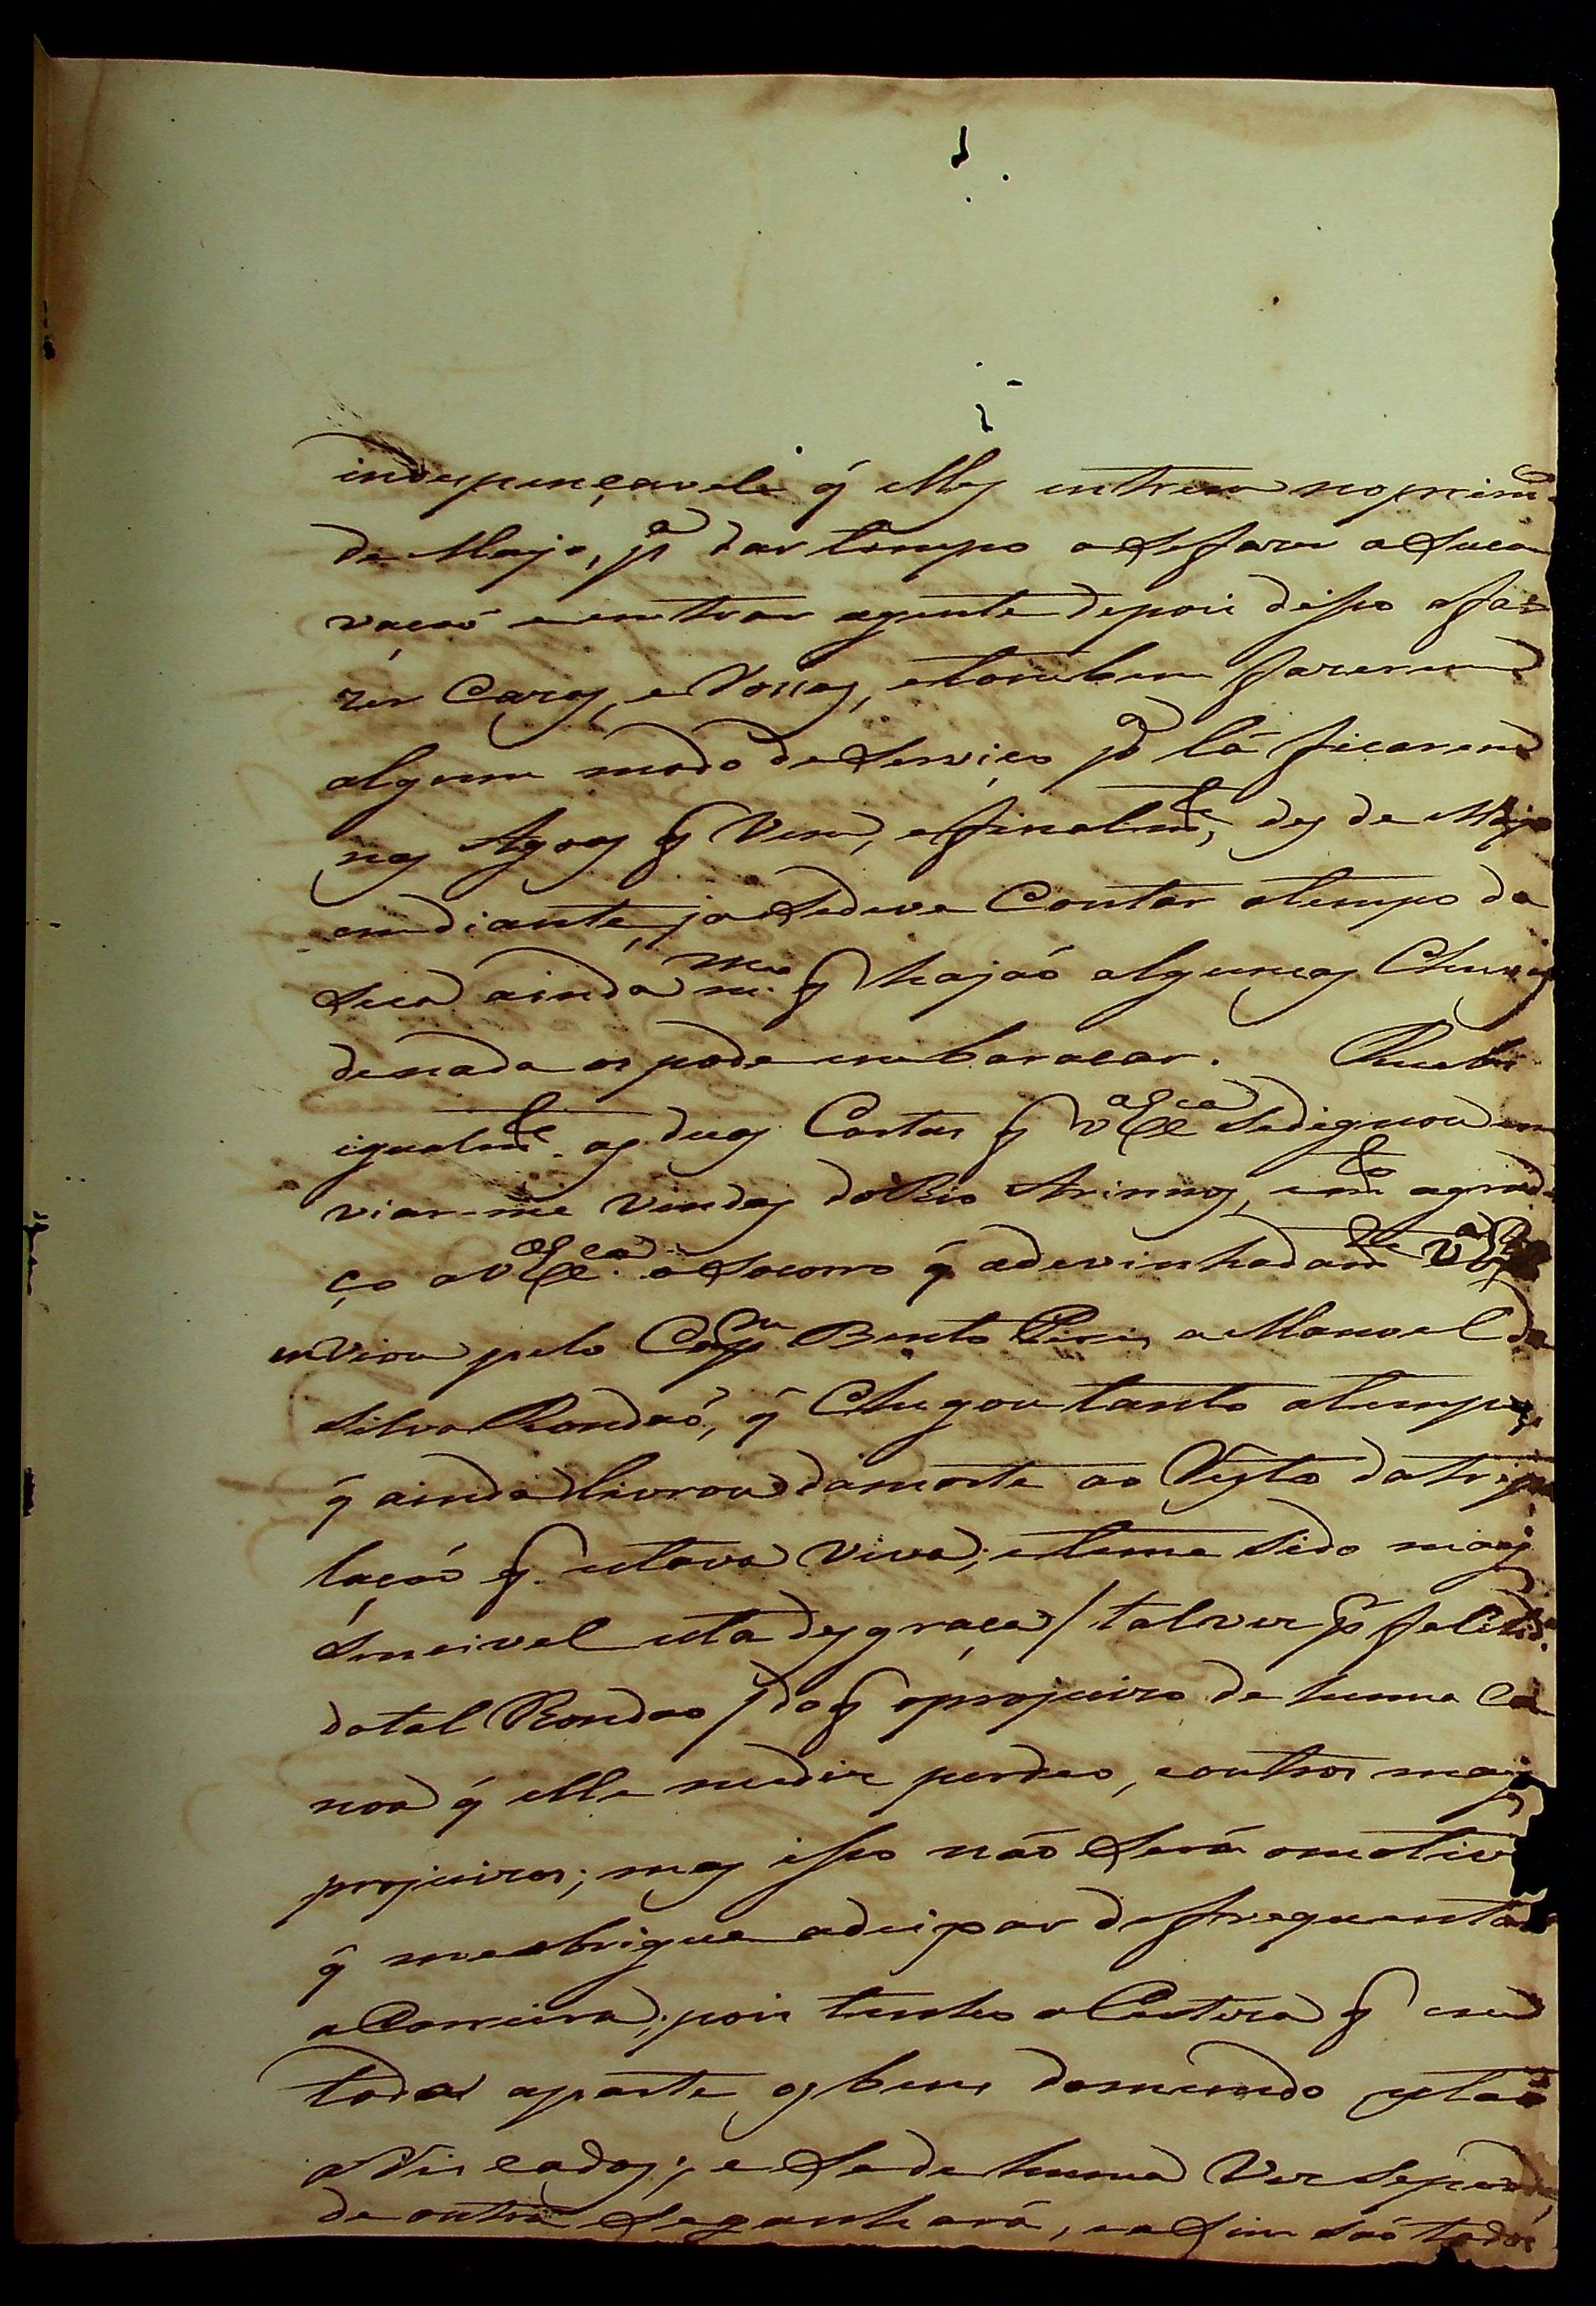 indespençavele q̃ elles entrem no prim.º
de Mayo, p.ª dar tempo a se fazer a Esca
vaçaõ e entrar agente depois disso a fa=
zer Cazas, e Rossas, etambem fazerem
algum modo de Serviço p.ª lá ficarem
nas Agoas q̃ Vem, efinalm.te, des de Mayo
emdiante, ja Sedeve Contar otempo da
Seca ainda m.mo q̃ hajaõ algumas Chuvas
denada os pode embaracar. Recebi
igualm.te as duas Cartas q̃ V.ª Ex.ca Sedignou en
viar-me vindas do Rio Arinos, e m.to agrade
ço a V.ª Ex.ca o Socorro q̃ adevinhadam.te V.ª Ex.ca
enviou pelo Cap.m Bento Pires a Manoel da
Silva Rondaõ, q̃ Chegou tanto atempo,
q̃ ainda livrou damorte ao Resto datripu
laçaõ q̃ estava viva; etem me sido mais
Sencivel esta desgraça / talvez p.r felicid.e
dotal Rondao / do q̃ oprojuizo de huma Ca
noa q̃ elle mediz perdeo, eoutros mais
projuizos; mas isso não Será omotivo
q̃ meobrigue adeixar defrequentar
aCarreira, pois tenho a Certeza q̃ em
toda aparte os bens domundo estaõ
aRiscados; e Sede huma VezSeperde,
de outra Seganhará, easim saõ todos